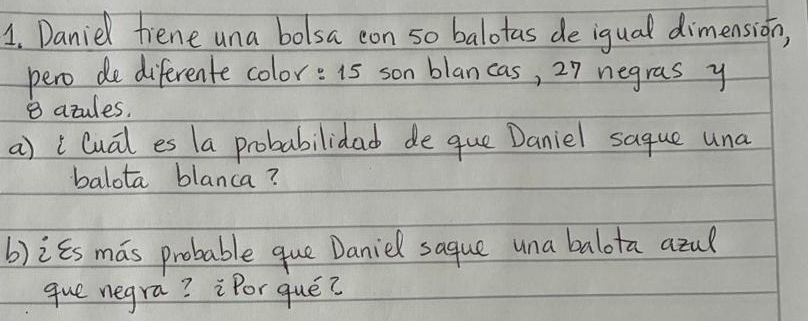 1. Daniel tiene una bolsa con 50 balotas de igual dimensión,
pero de diferente color: 15 son blancas, 27 negras y
8 azules.
a) ¿Cuál es la probabilidad de que Daniel saque una
balota blanca?
b) ¿Es más probable que Daniel saque una balota azul
que negra? ¿Por qué?